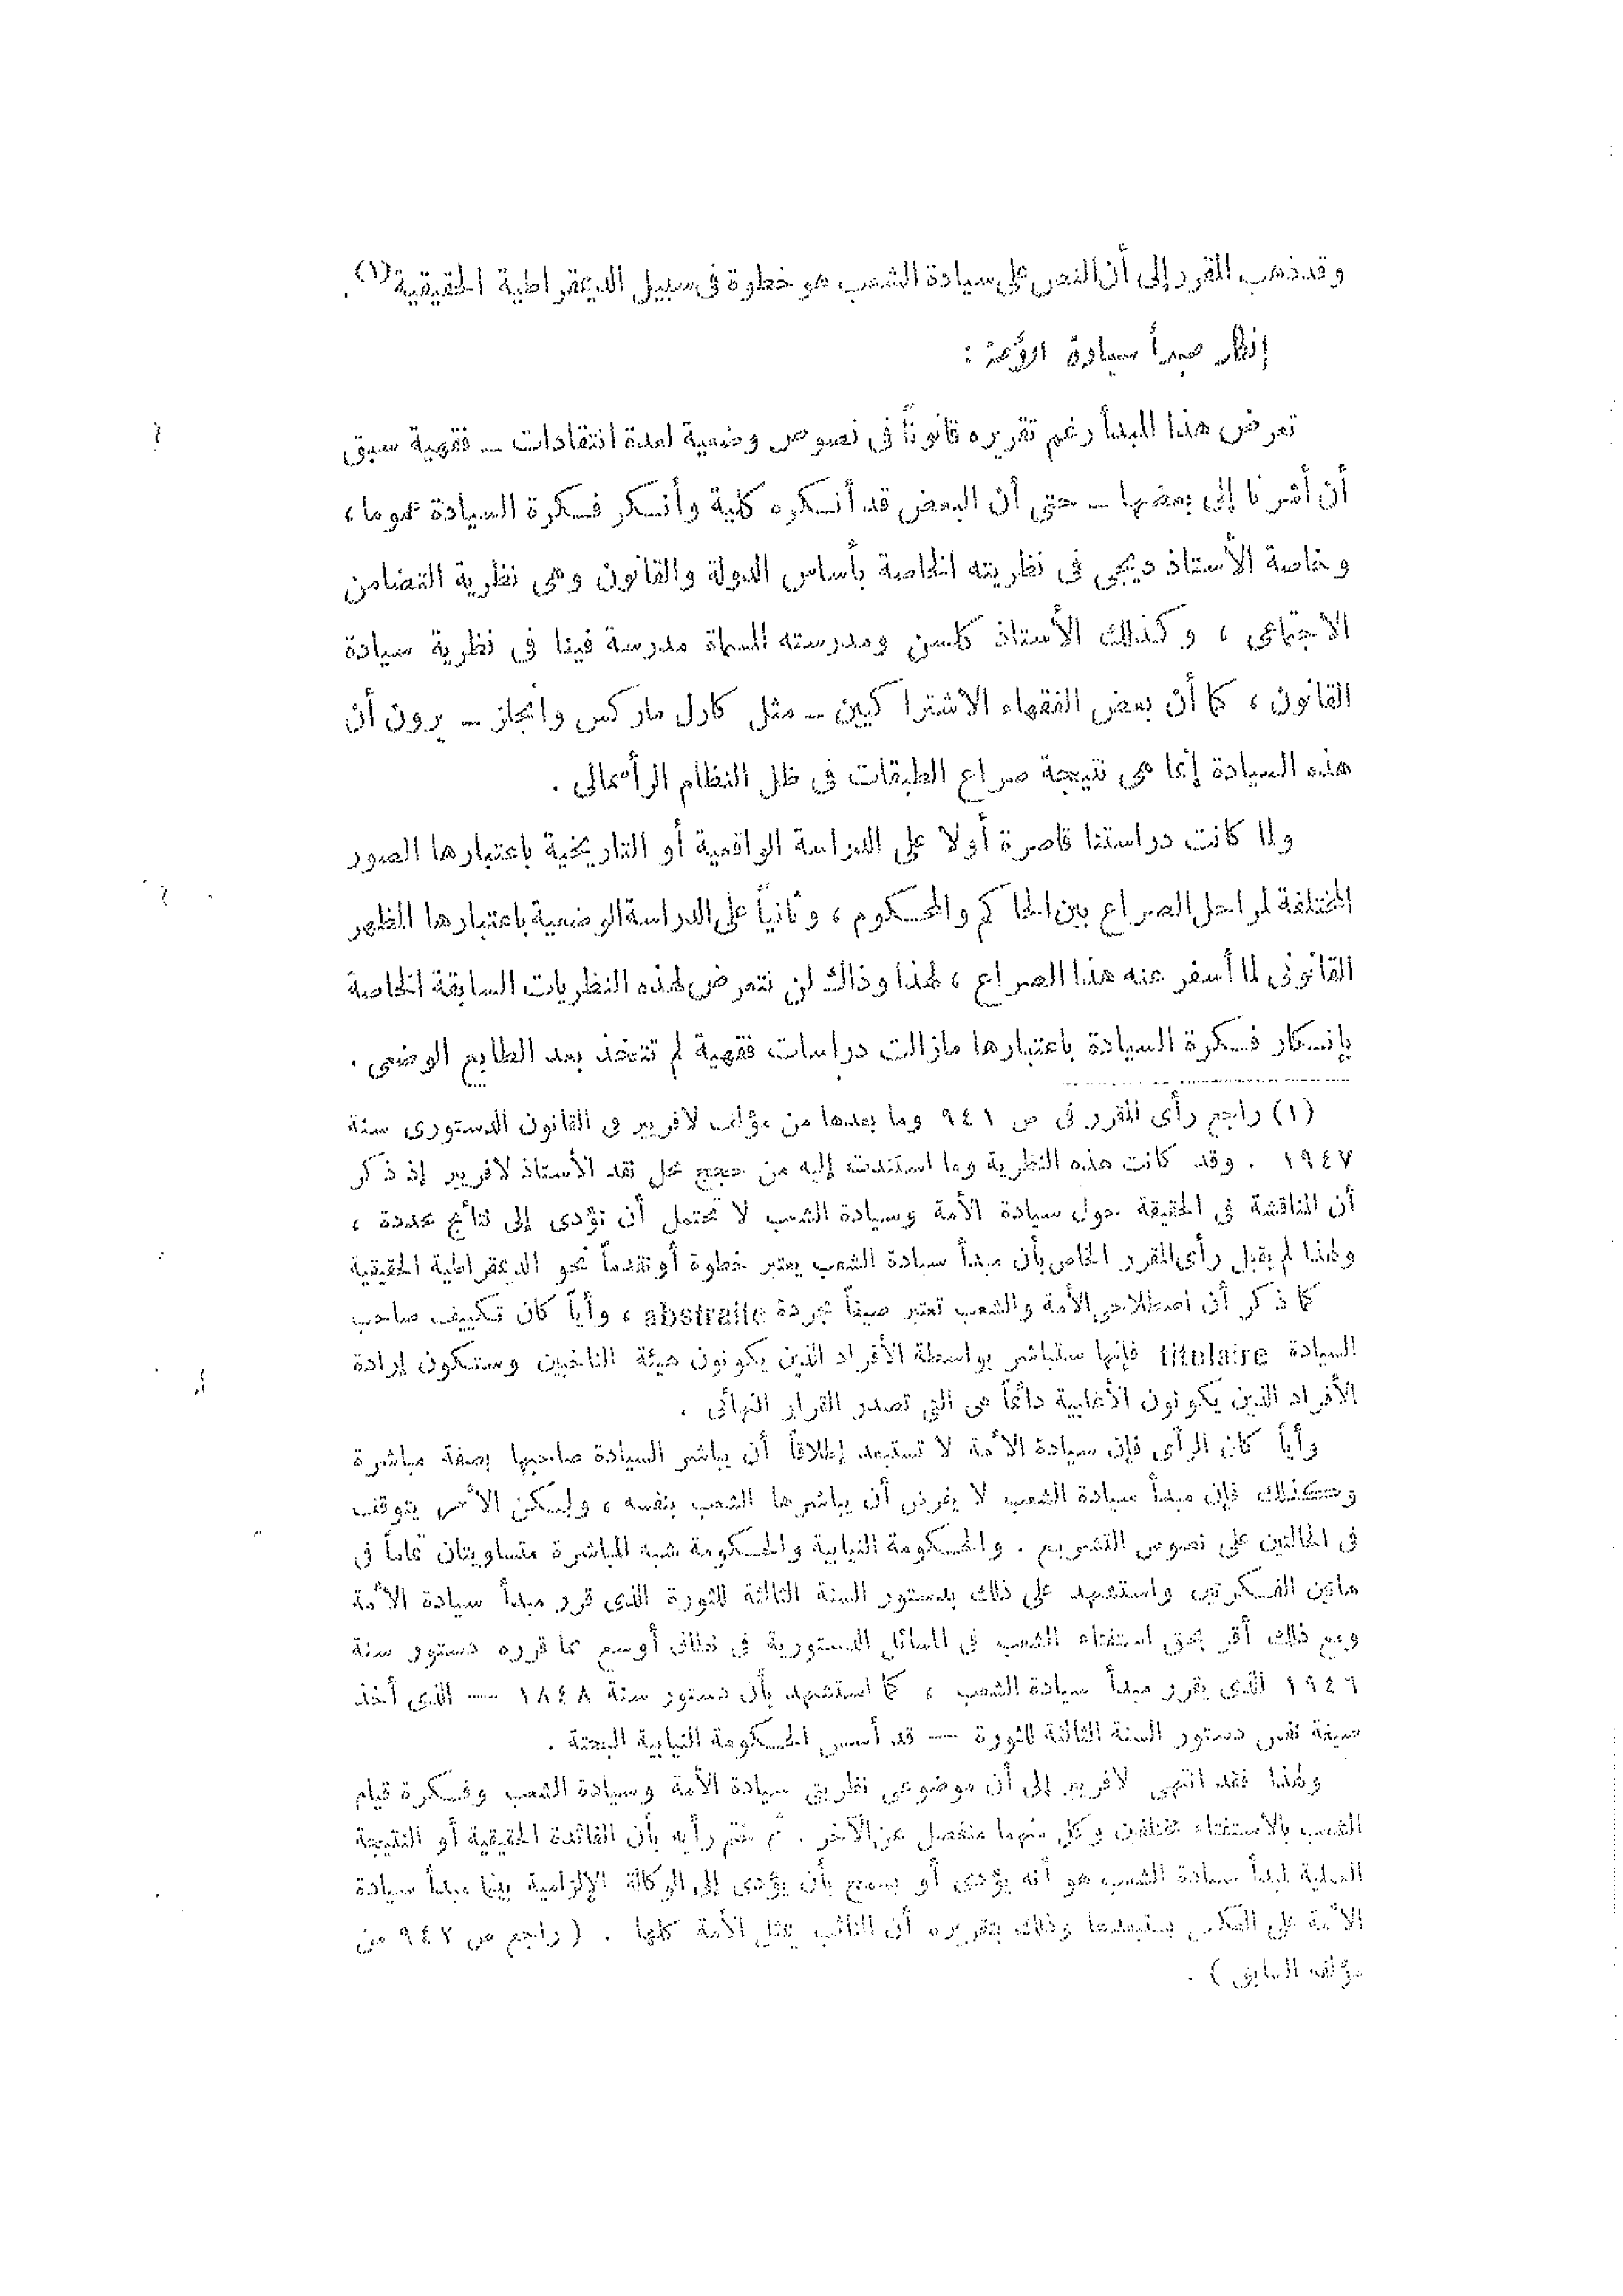 وقد ذهب المقرر إلى أن النص على سيادة الشعب هو خطوة فى سبيل الديمقراطية الحقيقية (١) .
إنكار مبدأ سيادة الأمة :
تعرض هذا المبدأ رغم تقريره قانوناً فى نصوص وضعية لعدة انتقادات – فقهية سبق
أن أشرنا إلى بعضها – حتى أن البعض قد أنكره كلية وأنكر فكرة السيادة عموما ،
وخاصة الأستاذ ديجى فى نظريته الخاصة بأساس الدولة والقانون وهى نظرية التضامن
الاجتماعى ، وكذلك الأستاذ كلسن ومدرسته المسماة مدرسة فينا فى نظرية سيادة
القانون ، كما أن بعض الفقهاء الاشتراكيين – مثل كارل ماركس وانجلز – يرون أن
هذه السيادة إنما هى نتيجة صراع الطبقات فى ظل النظام الرأسمالى .
ولما كانت دراستنا قاصرة أولا على الدراسة الواقعية أو التاريخية باعتبارها الصور
المختلفة لمراحل الصراع بين الحاكم والمحكوم ، وثانياً على الدراسة الوضعية باعتبارها المظهر
القانونى لما أسفر عنه هذا الصراع ، لهذا وذاك لن نتعرض لهذه النظريات السابقة الخاصة
بإنكار فكرة السيادة باعتبارها مازالت دراسات فقهية لم تتخذ بعد الطابع الوضعى .
(١) راجع رأى المقرر فى ص ٩٤١ وما بعدها من مؤلف لافريير فى القانون الدستورى سنة
١٩٤٧ . وقد كانت هذه النظرية وما استندت إليه من حجج محل نقد الأستاذ لافريير إذ ذكر
أن المناقشة فى الحقيقة حول سيادة الأمة وسيادة الشعب لا تحتمل أن تؤدى إلى نتائج محددة ،
ولهذا لم يقبل رأى المقرر الخاص بأن مبدأ سيادة الشعب يعتبر خطوة أو تقدماً نحو الديمقراطية الحقيقية
كما ذكر أن اصطلاحى الأمة والشعب تعتبر صيغاً مجردة abstraite ، وأياً كان تكييف صاحب
السيادة titulaire فإنها ستباشر بواسطة الأفراد الذين يكونون هيئة الناخبين وستكون إرادة
الأفراد الذين يكونون الأغلبية دائماً هى التى تصدر القرار النهائى .
وأياً كان الرأى فإن سيادة الأمة لا تستبعد إطلاقاً أن يباشر السيادة صاحبها بصفة مباشرة
وكذلك فإن مبدأ سيادة الشعب لا يفرض أن يباشرها الشعب بنفسه ، ولكن الأمر يتوقف
فى الحالتين على نصوص التشريع . والحكومة النيابية والحكومة شبه المباشرة متساويتان تماماً فى
هاتين الفكرتين واستشهد على ذلك بدستور السنة الثالثة للثورة الذى قرر مبدأ سيادة الأمة
ومع ذلك أقر بحق استفتاء الشعب فى المسائل الدستورية فى نطاق أوسع مما قرره دستور سنة
١٩٤٦ الذى يقرر مبدأ سيادة الشعب ، كما استشهد بأن دستور سنة ١٨٤٨ — الذى أخذ
صيغة نفس دستور السنة الثالثة للثورة — قد أسس الحكومة النيابية البحتة .
ولهذا فقد انتهى لافريير إلى أن موضوعى نظريتى سيادة الأمة وسيادة الشعب وفكرة قيام
الشعب بالاستفتاء مختلفين وكل منهما منفصل عن الآخر . ثم ختم رأيه بأن الفائدة الحقيقية أو النتيجة
العملية لمبدأ سيادة الشعب هو أنه يؤدى أو يسمح بأن يؤدى إلى الوكالة الإلزامية بينما مبدأ سيادة
الأمة على العكس يستبعدها وذلك بتقريره أن النائب يمثل الأمة كلها . ( راجع ص ٩٤٢ من
مؤلفه السابق ) .